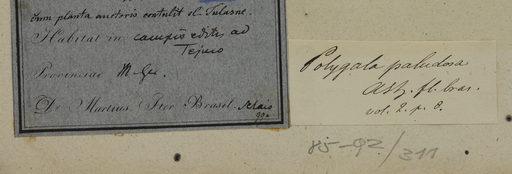 cum planta auctoris contulit cl. Tulasne.
Habitat in campis editis ad
Tejuco
Provinciae M. Ger.
Dr. Martius Iter Brasil.
Polygala paludosa
St. fl. bras.
vol. 2. p. 8.
85-92/311